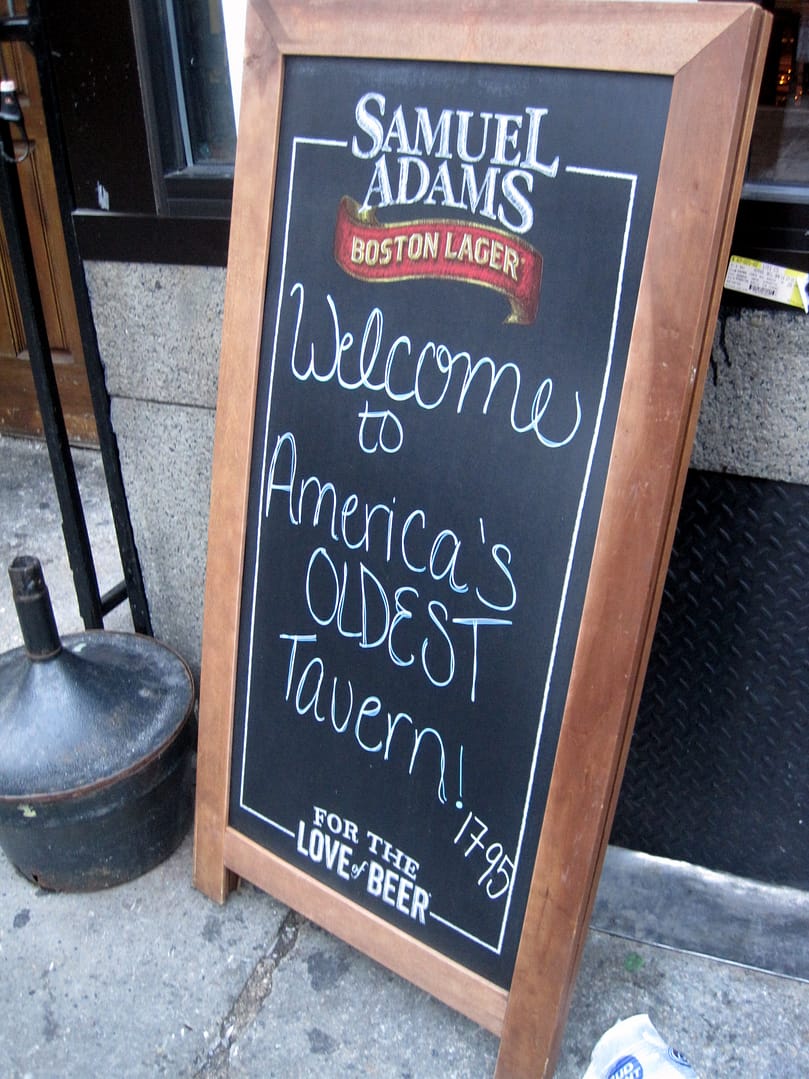 SAMUEL
ADAMS
BOSTON LAGER
Welcome
to
America's
OLDEST
Tavern!
1795
FOR THE
LOVE of BEER